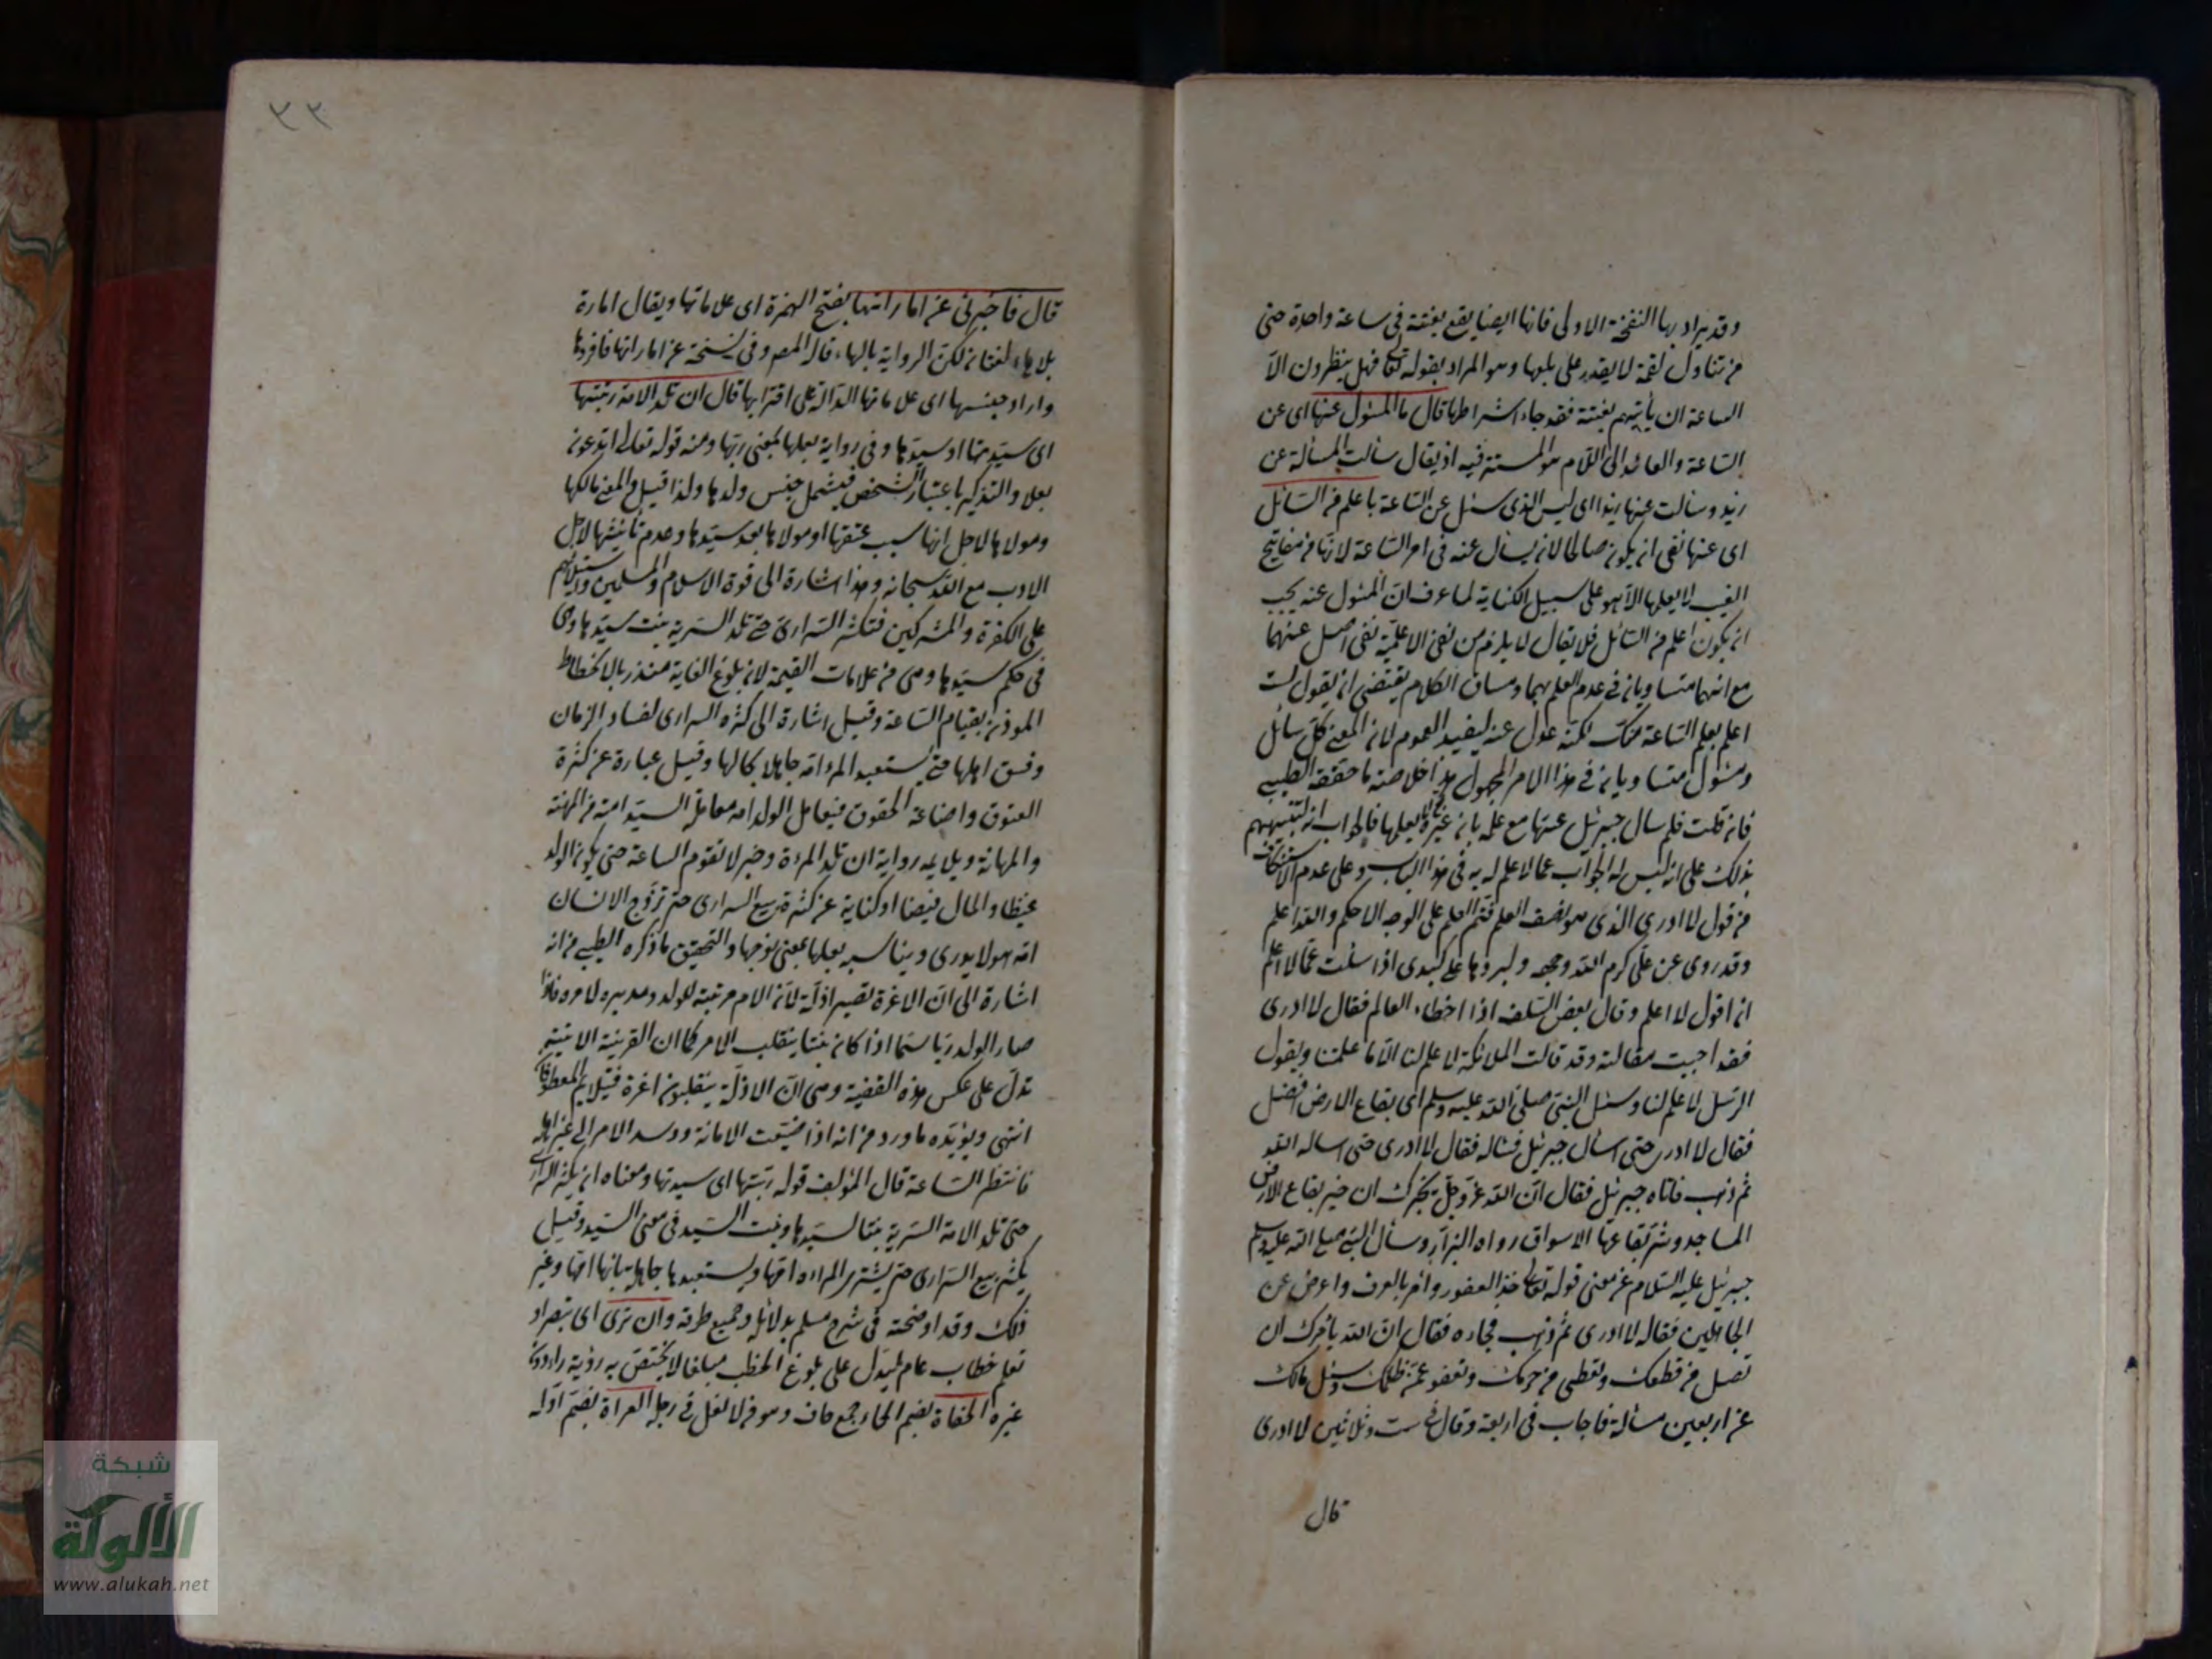 وقد يراد بها النفخة الاولى فانها ايضا يقع بغتة في ساعة واحدة حتى
من تناول لقمة لا يقدر على بلعها وهو المراد بقوله تعالى فهل ينظرون الا
الساعة ان يأتيهم بغتة فقد جاء اشراطها قال ما المسئول عنها اى عن
الساعة والعائد الى اللام هو المستتر فيه اذ يقال سألت المسألة عن
زيد وسألت عنها زيدا اى ليس الذى سئل عن الساعة باعلم من السائل
اى عنها نفى ان يكون صالحا لان يسأل عنه فى امر الساعة لانها من مفاتيح
الغيب لا يعلمها الا هو على سبيل الكناية لما عرف ان المسئول عنه يجب
ان يكون اعلم من السائل فلا يقال لا يلزم من نفى الاعلمية نفى اصل عنهما
مع انهما متساويان فى عدم العلم بهما ومساق الكلام يقتضى ان يقول لست
اعلم بعلم الساعة منك لكنه عدل عنه ليفيد العموم لان المعنى كل سائل
ومسئول متساويان فى هذا الامر المجهول هذا خلاصة ما حققه الطيبى
فان قلت فلم سال جبرئيل عنها مع علمه بانه غيره تعالى لا يعلمها فالجواب انه لتنبيههم
بذلك على انه ليس له الجواب عما لا علم له به فى هذا الباب وعلى عدم الاستنكاف
من قول لا ادرى الذى هو نصف العلم فتم العلم على الوجه الاحكم والله اعلم
وقد روى عن على كرم الله وجهه وابردها على كبدى اذا سئلت عما لا اعلم
ان اقول لا اعلم وقال بعض السلف اذا اخطاء العالم فقال لا ادرى
فقد اجيبت مقالته وقد قالت الملائكة لا علم لنا الا ما علمتنا ويقول
الرسل لا علم لنا وسئل النبى صلى الله عليه وسلم اى بقاع الارض افضل
فقال لا ادرى حتى اسأل جبرئيل فسأله فقال لا ادرى حتى اساله الله
ثم ذهب فاتاه جبرئيل فقال ان الله عز وجل يخبرك ان خير بقاع الارض
المساجد وشر بقاعها الاسواق رواه البزار وسأل النبى صلى الله عليه وسلم
جبرئيل عليه السلام عن معنى قوله تعالى خذ العفو وامر بالعرف واعرض عن
الجاهلين فقال لا ادرى ثم ذهب فجاءه فقال ان الله يامرك ان
تصل من قطعك وتعطى من حرمك وتعفو عمن ظلمك وسئل مالك
عن اربعين مسألة فاجاب فى اربعة وقال فى ست وثلاثين لا ادرى
قال
قال فاخبرنى عن اماراتها بفتح الهمزة اى علاماتها ويقال امارة
بلا هاء لغتان لكن الرواية بالهاء قاله المص وفى نسخة عن اماراتها فافردها
واراد جنسها اى علاماتها الدالة على اقترابها قال ان تلد الامة ربتها
اى سيدتها او سيدها وفى رواية بعلها بمعنى ربها ومنه قوله تعالى اتدعون
بعلا والتذكير باعتبار الشخص فيشمل جنس ولدها ولذا قيل والمعنى مالكها
ومولاها لاجل انها سبب عتقها او مولاها بعد سيدها وعدم تأنيثها لاجل
الادب مع الله سبحانه وهذا اشارة الى قوة الاسلام والمسلمين واستيلائهم
على الكفرة والمشركين فتكثر السرارى حتى تلد السرية بنت سيدها وهى
فى حكم سيدها وهى من علامات القيمة لان بلوغ الغاية منذر بالانحطاط
الموذن بقيام الساعة وقيل اشارة الى كثرة السرارى لفساد الزمان
وفسق اهلها حتى يستعبد المرء امه جاهلا بحالها وقيل عبارة عن كثرة
العقوق واضاعة الحقوق فيعامل الولد امه معاملة السيد امته من المهنة
والمهانة ويلايمه رواية ان تلد المرءة وخبر لا تقوم الساعة حتى يكون الولد
غيظا والمال فيضا او كناية عن كثرة بيع السرارى حتى تزوج الانسان
امه وهو لا يدرى ويناسبه بعلها بمعنى زوجها والتحقيق ما ذكره الطيبى من انه
اشارة الى ان الاعزة تصير اذلة لان الام مربية للولد ومدبره لامره فاذا
صار الولد ربا سيما اذا كان بنتا ينقلب الامر كما ان القرينة الاتية
تدل على عكس هذه القضية وهى ان الاذلة ينقلبون اعزة فيتلايم المعطوفان
انتهى ويؤيده ما ورد من انه اذا ضيعت الامانة ووسد الامر الى غير اهله
فانتظر الساعة قال المؤلف قوله ربتها اى سيدتها ومعناه ان يكثر السرارى
حتى تلد الامة السرية بنتا لسيدها وبنت السيد فى معنى السيد وقيل
يكثر بيع السرارى حتى يشترى المراءة امها ويستعبدها جاهلة بانها امها وغير
ذلك وقد اوضحته فى شرح مسلم بدلائله وجميع طرقه وان ترى اى تبصر او
تعلم خطاب عام ليدل على بلوغ الخطب مبلغا لا يختص به رؤية راء دون
غيره الحفاة بضم الحاء جمع حاف وهو من لا نعل فى رجله العراة بضم اوله
شبكة
الألوكة
www.alukah.net